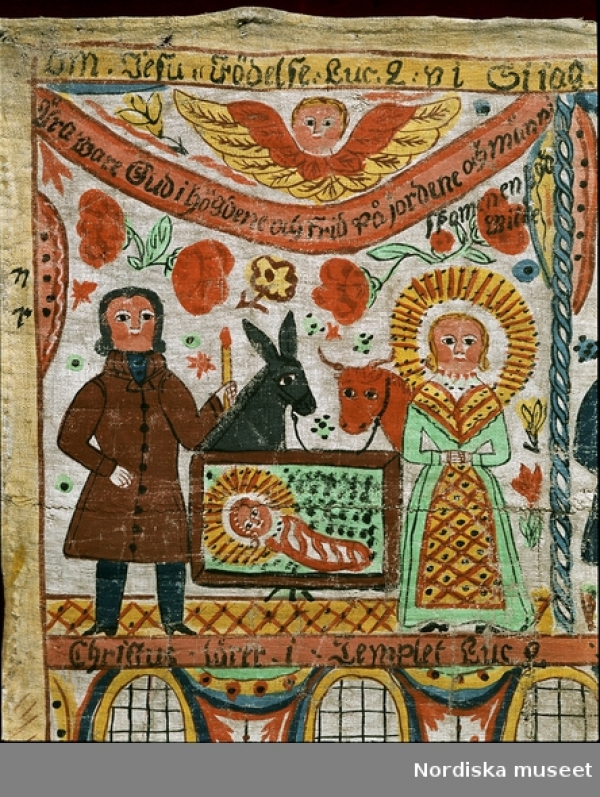 om Jesu Födelse. Luc. 2. v i
Ära ware Gud i högdene och Frid på jordene och
men en
Wilie
Christus lärer i Templet Luc 2
Nordiska museet